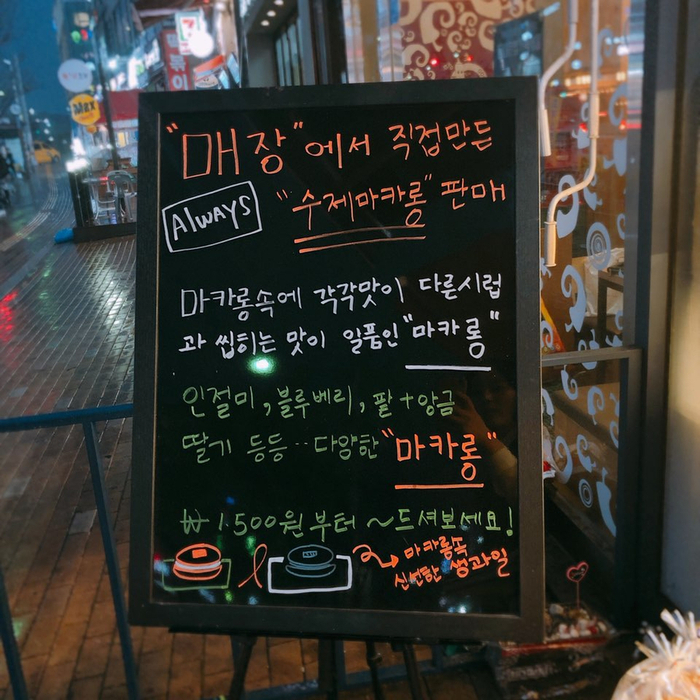 "매장"에서 직접만든
Always "수제마카롱" 판매
마카롱속에 각각맛이 다른시럽
과 씹히는 맛이 일품인 "마카롱"
인절미, 블루베리, 팥+앙금
딸기 등등‥다양한 "마카롱"
₩1.500원부터 ~드셔보세요!
마카롱속
신선한 생과일